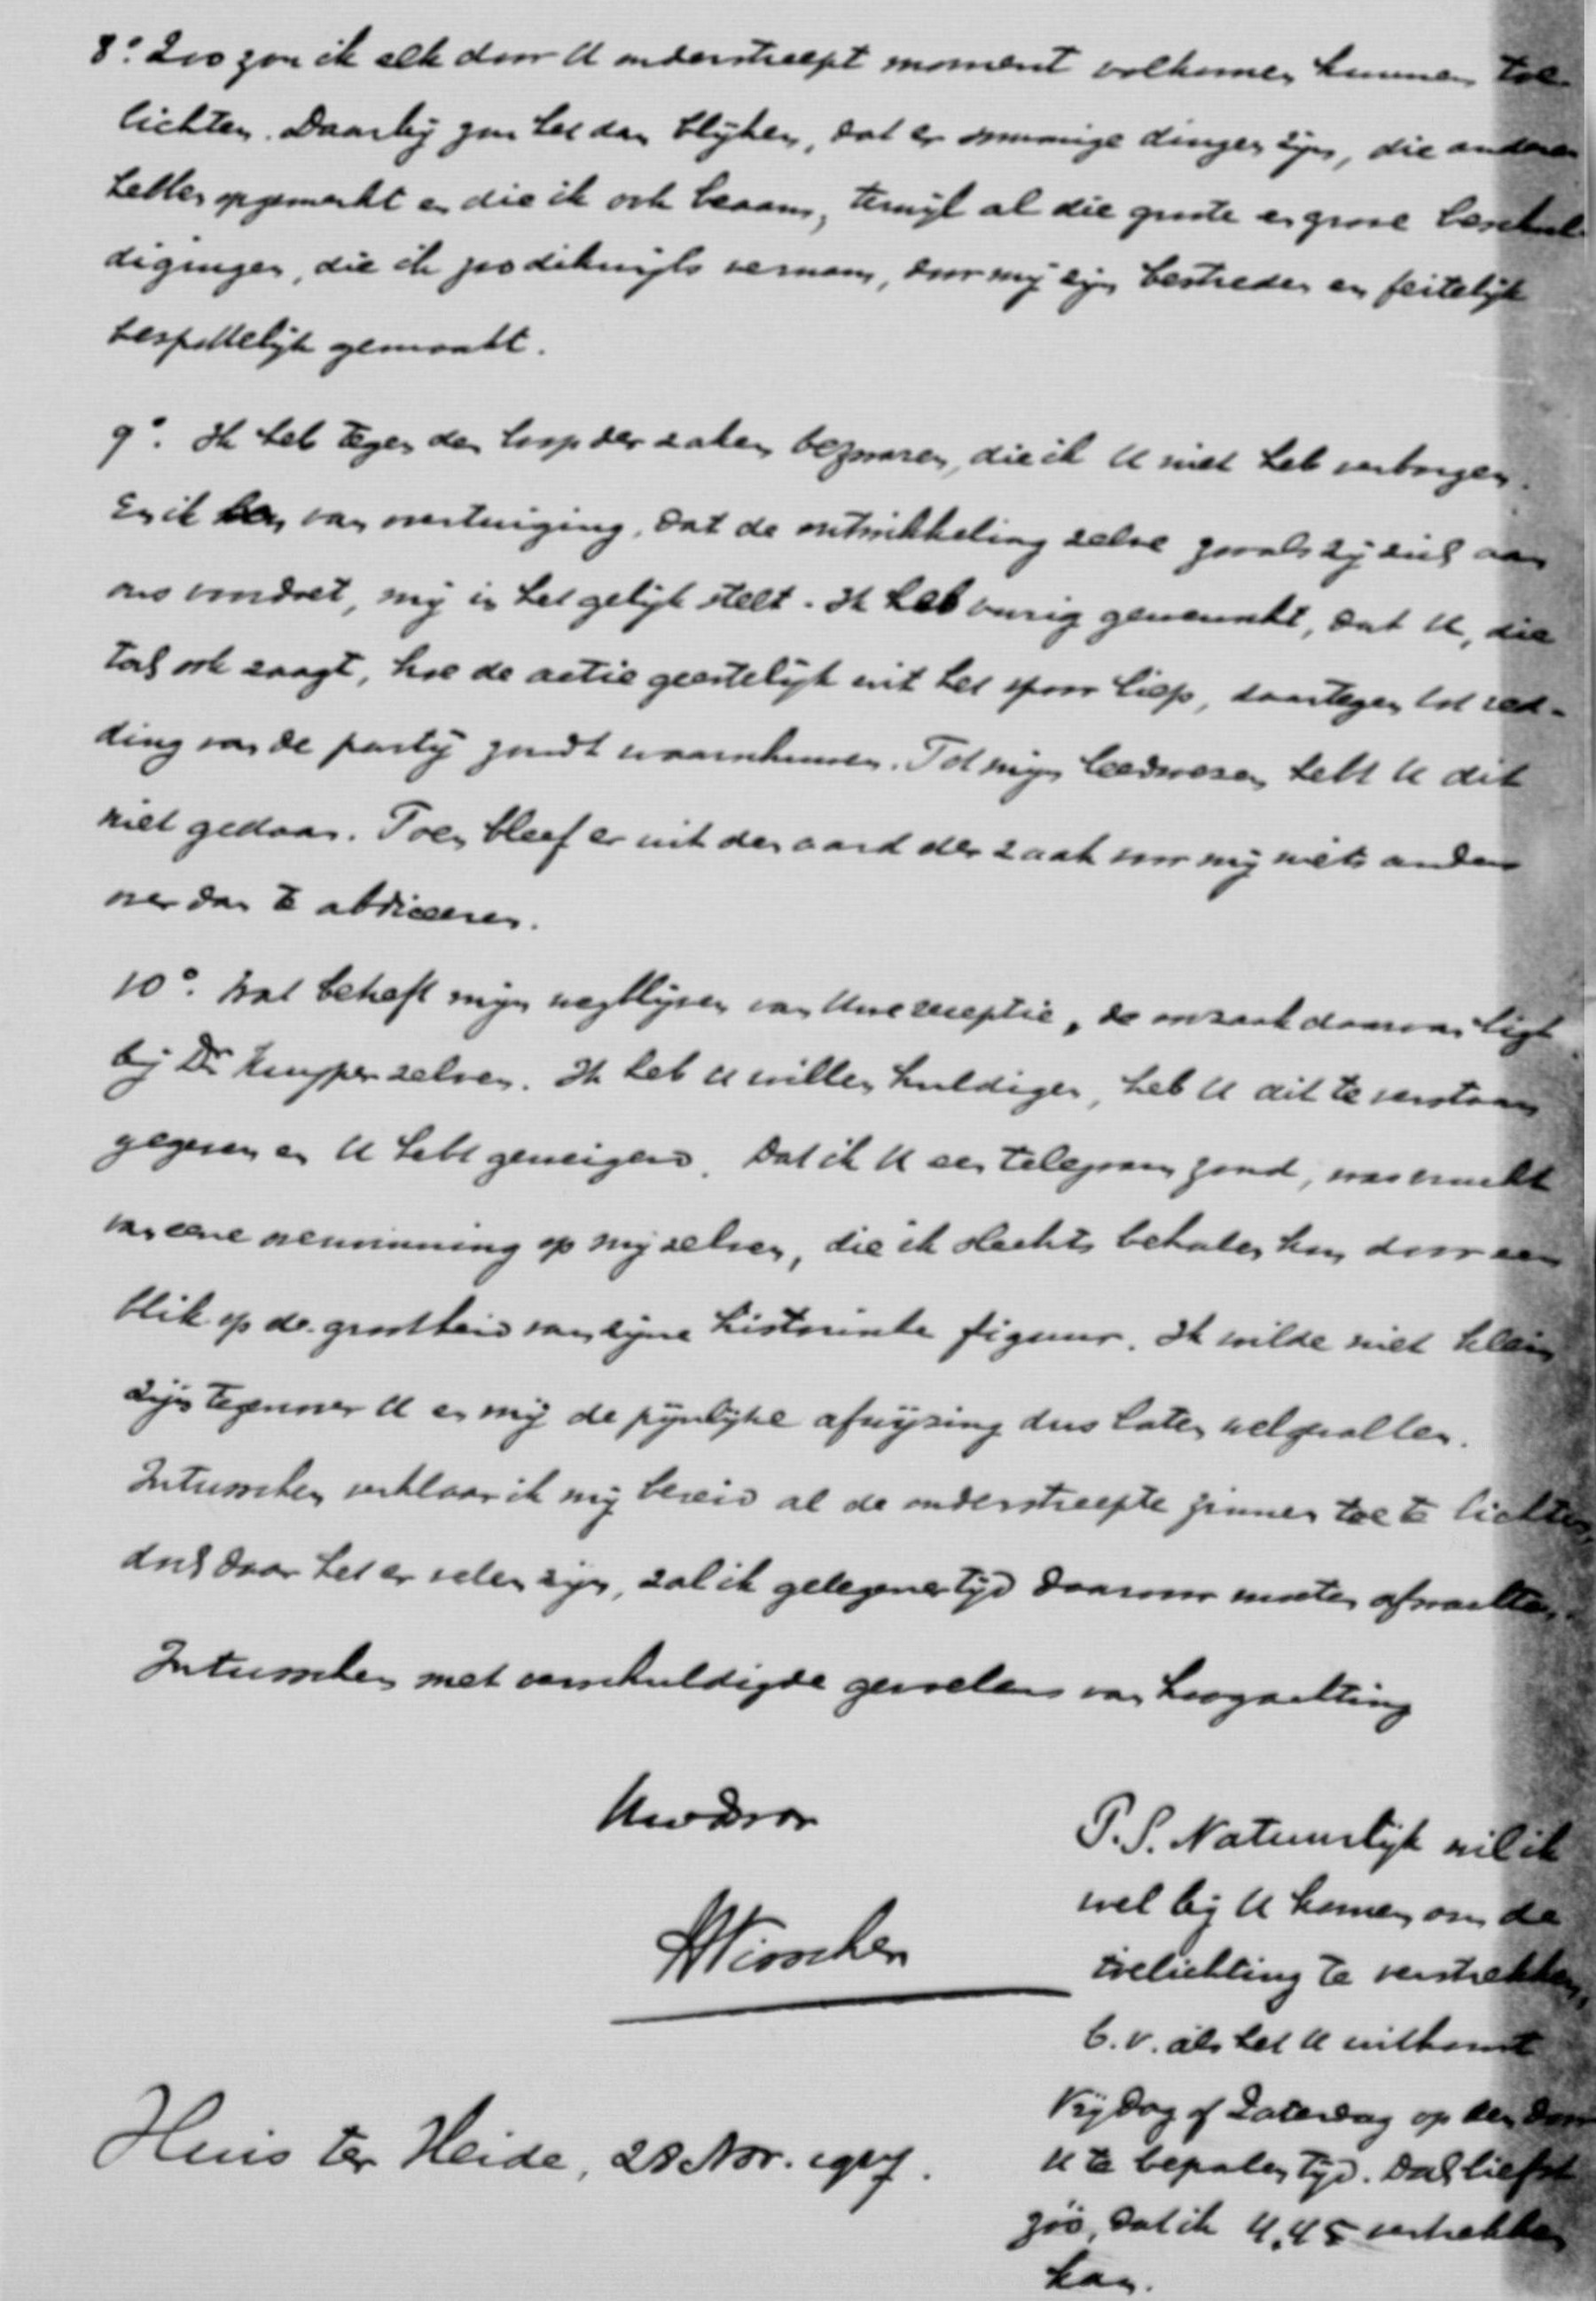 8°. Zoo zou ik elk door U onderstreept moment volkomen kunnen toe-
lichten. Daarbij zou het dan blijken, dat er sommige dingen zijn, die anderen
hebben opgemerkt en die ik ook beaam, terwijl al die groote en grove beschul-
digingen, die ik zoo dikwijls vernam, door mij zijn bestreden en feitelijk
bespottelijk gemaakt.
9°. Ik heb tegen den loop der zaken bezwaren, die ik U niet heb verborgen.
En ik ben van overtuiging, dat de ontwikkeling zelve zooals zij zich aan
ons voordoet, mij in het gelijk stelt. Ik heb vurig gewenscht, dat U, die
toch ook zaagt, hoe de actie geestelijk uit het spoor liep, daartegen tot red-
ding van de partij zoudt waarschuwen. Tot mijn leedwezen hebt U dit
niet gedaan. Toen bleef er uit den aard der zaak voor mij niets anders
over dan te abdiceeren.
10°. Wat betreft mijn wegblijven van Uwe receptie, de oorzaak daarvan ligt
bij Dr Kuyper zelven. Ik heb U willen huldigen, heb U dit te verstaan
gegeven en U hebt geweigerd. Dat ik U een telegram zond, was vrucht
van eene overwinning op mijzelven, die ik slechts behalen kon door een
blik op de grootheid van zijne historische figuur. Ik wilde niet klein
zijn tegenover U en mij de pijnlijke afwijzing dus laten welgevallen.
Intusschen verklaar ik mij bereid al de onderstreepte zinnen toe te lichten,
doch daar het er velen zijn, zal ik gelegener tijd daarvoor moeten afwachten.
Intusschen met verschuldigde gevoelens van hoogachting
Uwdnr
HVisscher
Huis ter Heide, 28 Nov. 1917.
P.S. Natuurlijk wil ik
wel bij U komen om de
toelichting te verstrekken,
b.v. als het U uitkomt
Vrijdag of Zaterdag op den door
U te bepalen tijd. Doch liefst
zóó, dat ik 4,45 vertrekken
kan.